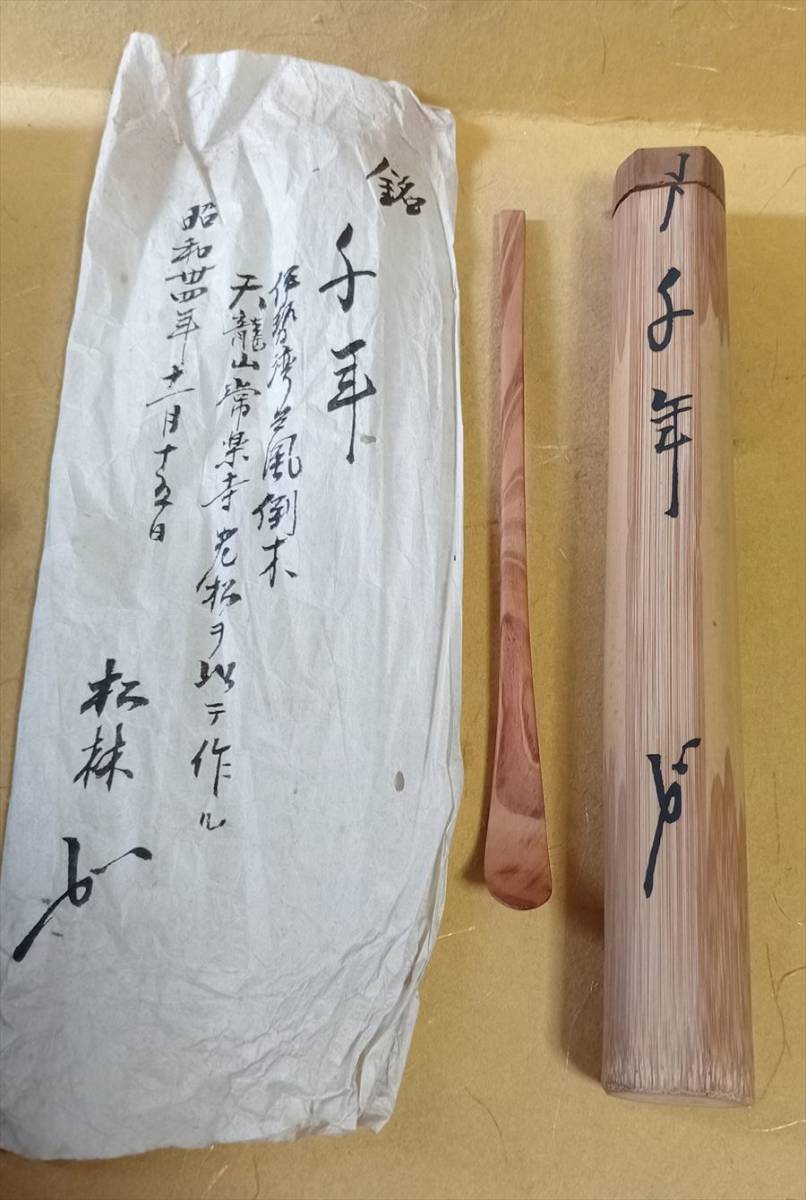 銘
千年
伊勢湾台風倒木
天龍山常楽寺老松ヲ以テ作ル
昭和卅四年十一月十五日
松林
千年